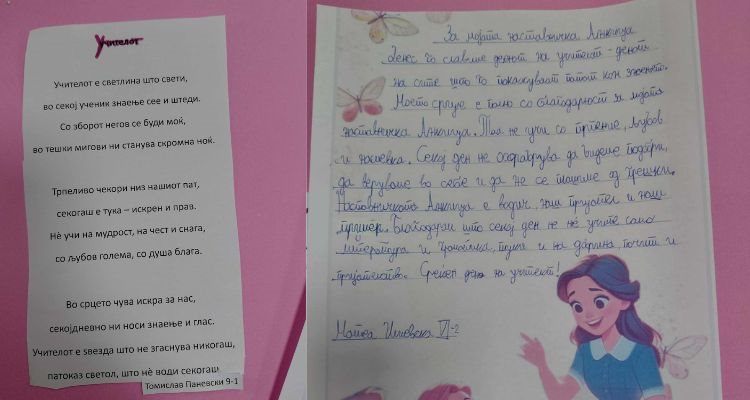 Учителот
Учителот е светлина што свети,
во секој ученик знаење сее и штеди.
Со зборот негов се буди моќ,
во тешки мигови ни станува скромна ноќ.
Трпеливо чекори низ нашиот пат,
секогаш е тука – искрен и прав.
Нè учи на мудрост, на чест и снага,
со љубов голема, со душа блага.
Во срцето чува искра за нас,
секојдневно ни носи знаење и глас.
Учителот е ѕвезда што не згаснува никогаш,
патоказ светол, што нè води секогаш
Томислав Паневски 9-1
За мојата наставничка
Денес го славиме денот на учителот - денот
на сите што го покажуваат патот кон знаењето.
Моето срце е полно со благодарност за мојата
наставничка. Таа не учи со трпение, љубов
и насмевка. Секој ден не охрабрува да бидеме подобри,
да веруваме во себе и да не се плашиме од грешки.
Наставничката е водич, наш пријател и наш
пример. Благодарам што секој ден не нè учите само
литература и граматика, туку и на дарина, почит и
пријателство. Среќен ден на учителот!
Матеа VI-2